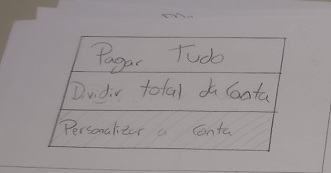 Pagar Tudo
Dividir total da Conta
Personalizar a conta